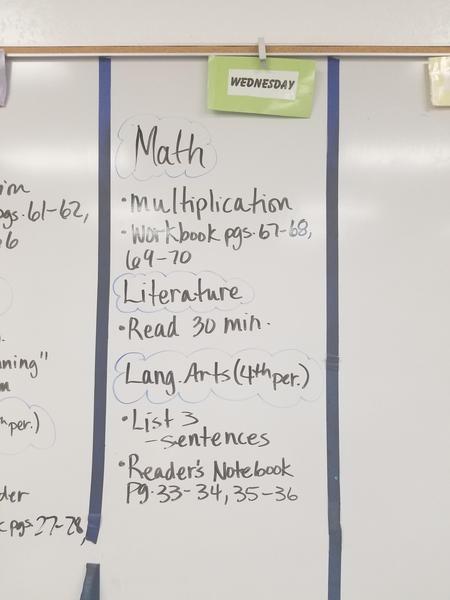 WEDNESDAY
Math
• Multiplication
• Workbook pgs. 67-68,
69-70
Literature
• Read 30 min.
Lang. Arts (4th per.)
• List 3
- sentences
• Reader's Notebook
Pg. 33-34, 35-36
pgs. 61-62,
ning"
per.)
der
pgs. 27-28,